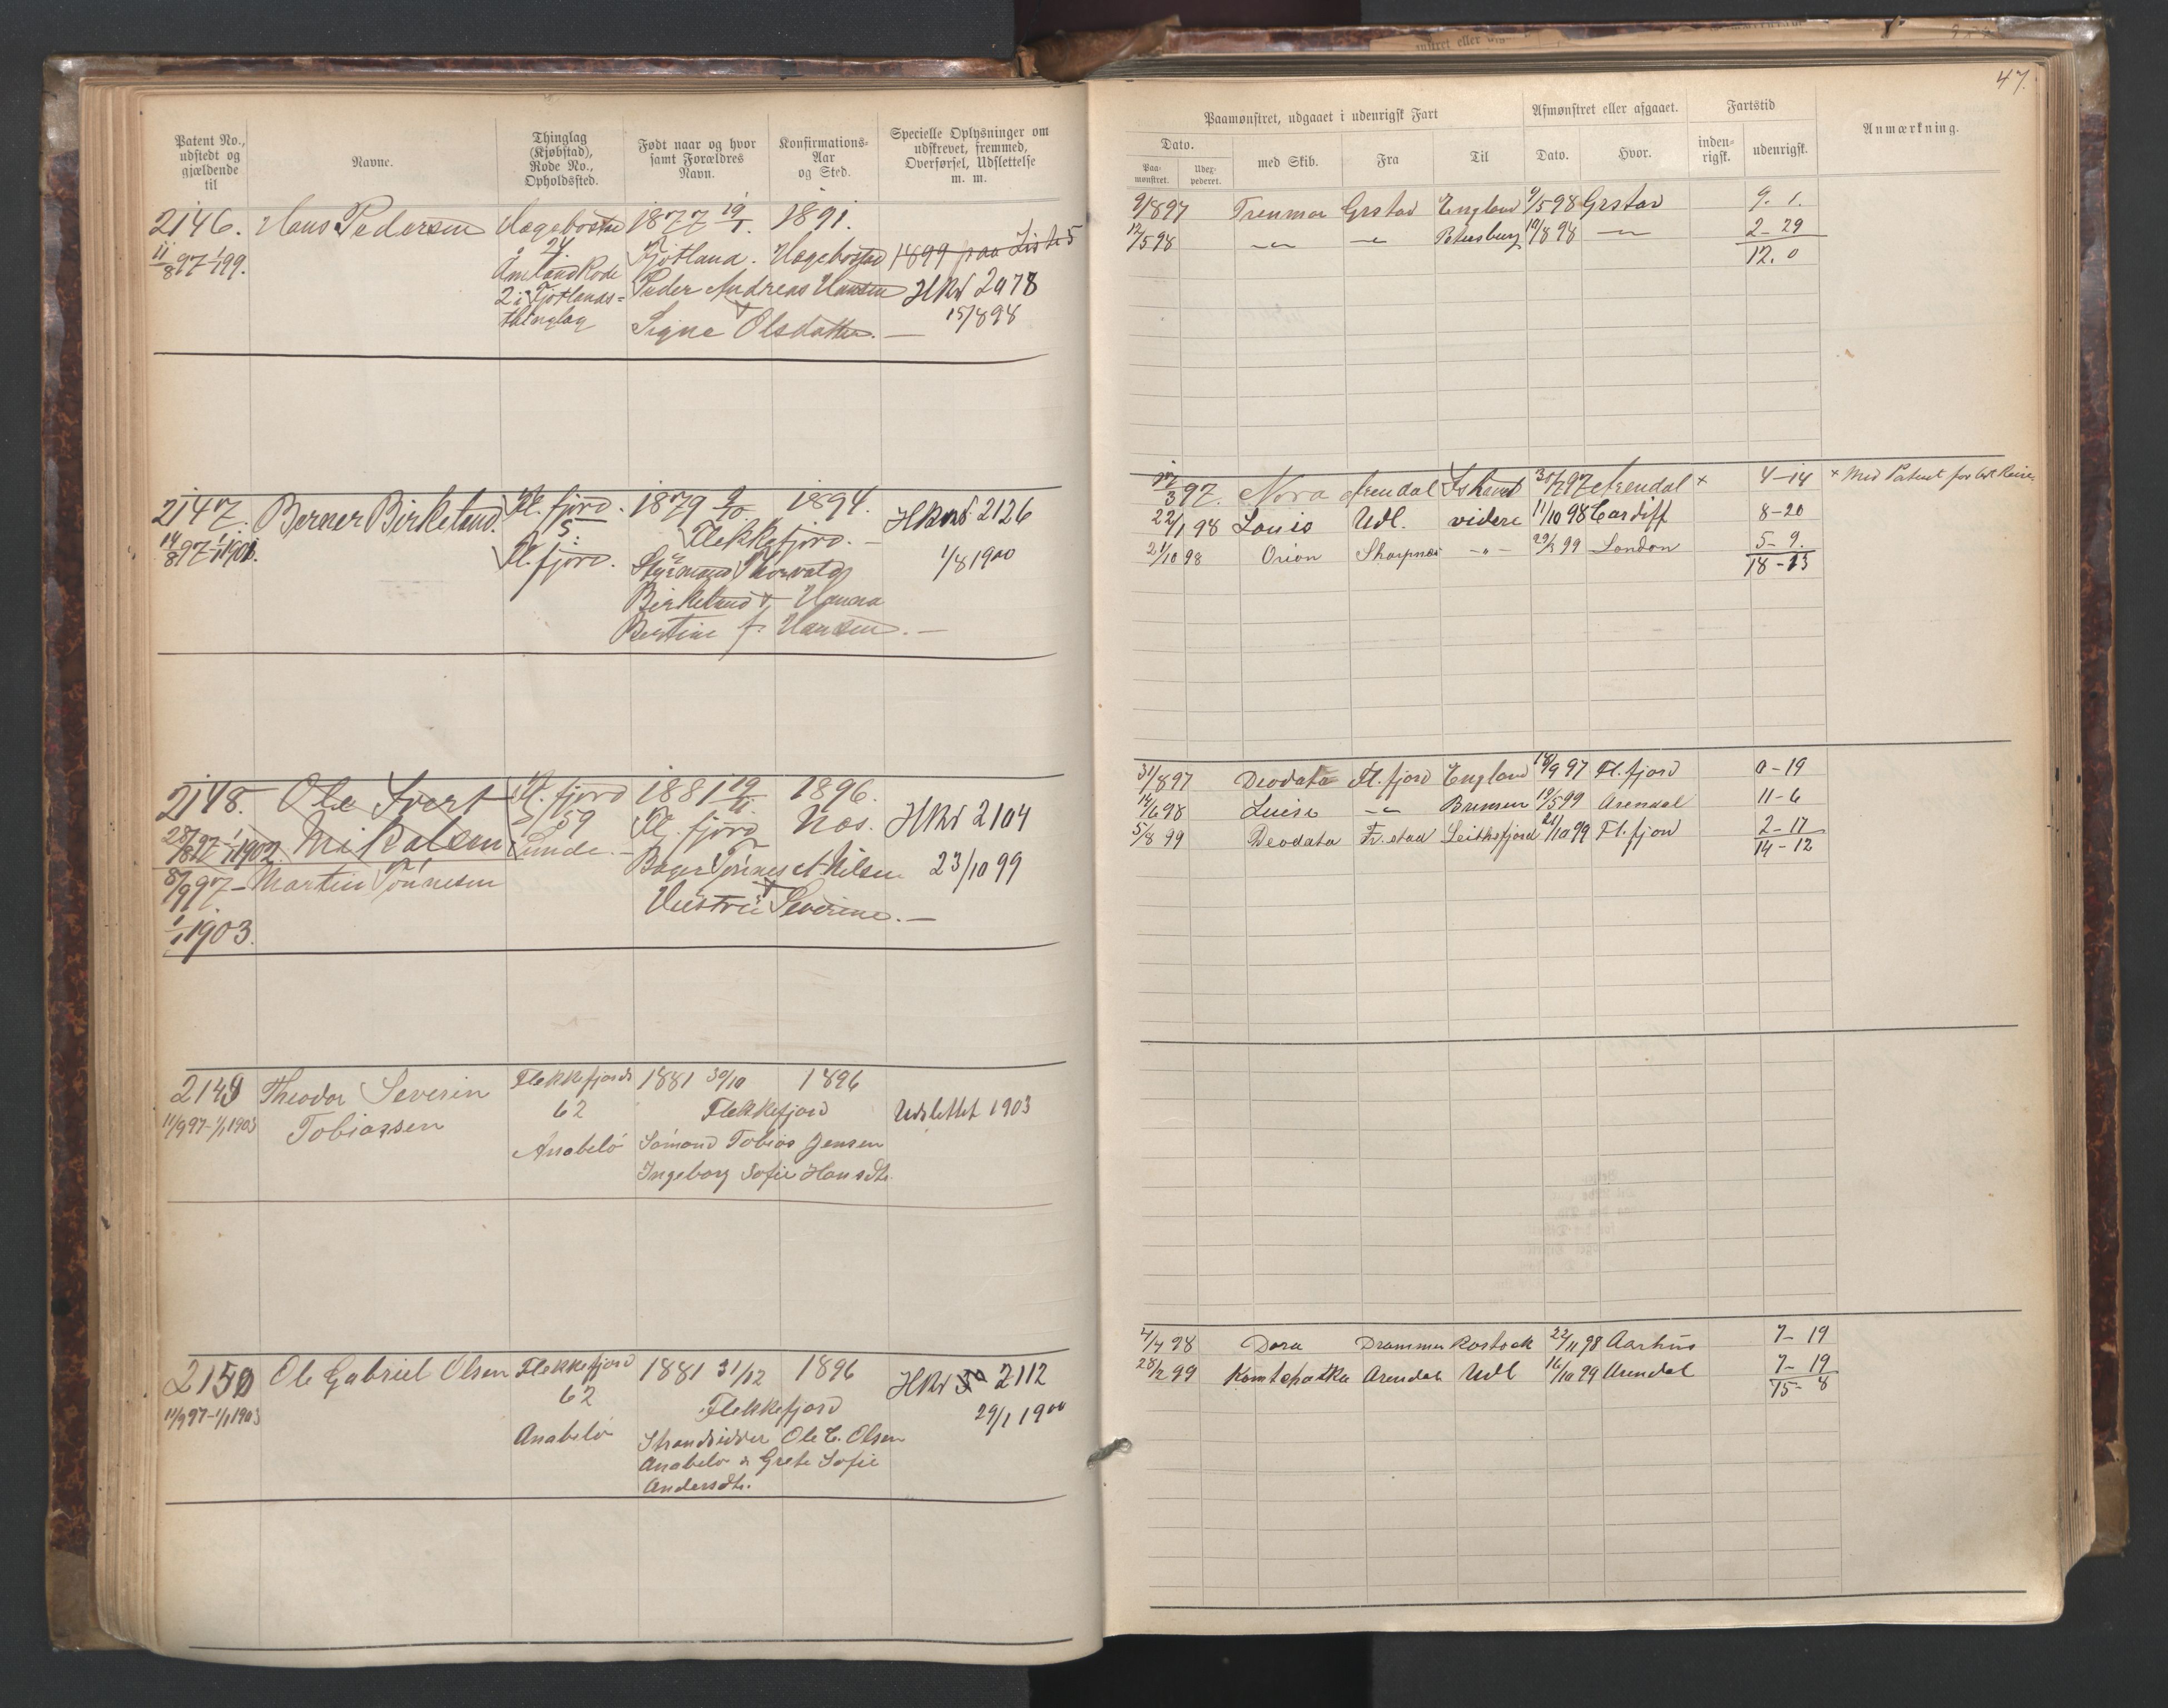 47.
Patent No.,
udstedt og
gjældende
til
Navne.
Thinglag
(Kjøbstad),
Rode No.,
Opholdssted.
Født naar og hvor
samt Forældres
Navn.
Konfirmations-
Aar
og Sted.
Specielle Oplysninger om
udskrevet, fremmed,
Overførsel, Udslettelse
m. m.
Paamønstret, udgaaet i udenrigsk Fart
Dato.
Paa-
mønstret.
Udex-
pederet.
med Skib.
Fra
Til
Afmønstret eller afgaaet.
Dato.
Hvor.
Fartstid
inden-
rigsk.
udenrigsk.
Anmærkning.
2146. Hans Pedersen Hægebostad 1877 19/1. 1891.
11/8 97-1/1 99. 24. Fjotland. Hægebostad 1899 paa Liste 5
Amland Rode Peder Andreas Hansen HRN 2078
2 i Fjotlands= 15/8 98
thinglag Signe Olsdatter. —
9/8 97 Grstad England 9/5 98 Grstad 9. 1.
12/5 98 —„— —„— Petersburg 10/8 98 —„— 2-29
12. 0
2147. Berner Birkeland. Fl. fjord. 1879 9/10 1894. HRN 2126
14/8 97-1/1 1901. 5. Flekkefjord. — 1/8 1900
Fl. fjord. Styrmand Thorvald
Birkeland & Hanna
Bertine f. Hansen. —
3 97. Nora Arendal Ishavet 97 Arendal × 4-14 × Med Patent for
22/1 98 Louis Udl. videre 11/10 98 Cardiff 8-20
21/10 98 Orion Sharpnes -„- 29/3 99 London 5-9.
18-13
2148. Ole Sivert Fl. fjord 1881 19/ 1896. HRN 2104
28/8 97-1/1 1902. Mikalsen 59 Fl. fjord Næs. 23/10 99
8/9 97- Martin Tönnesen Lunde. — Bager Tönnes A. Nilsen
1/1 1903. Hustru Severine. —
31/8 97 Deodata Fl. fjord England 18/9 97 Fl. fjord 0-19
14/6 98 Luise —„— Bremen 19/5 99 Arendal 11-6
5/8 99 Deodata Fr. stad Leithsfjord 21/10 99 Fl. fjord 2-17
14-12
2149 Theodor Severin Flekkefjords 1881 30/10 1896
11/9 97-1/1 1903 Tobiassen 62 Flekkefjord Udslettet 1903
Anabelö Sömand Tobias Jensen
Ingeborg Sofie Hansdtr.
2150 Ole Gabriel Olsen Flekkefjord 1881 31/12 1896 HRN 2112
11/9 97-1/1 1903 62 Flekkefjord 29/1 1900
Anabelö Strandsidder Ole C. Olsen
Anabelö & Grete Sofie
Andersdtr.
4/4 98 Dora Drammen Rostock 22/11 98 Aarhus 7-19
28/2 99 Kamtchatka Arendal Udl 16/10 99 Arendal 7-19
15-8